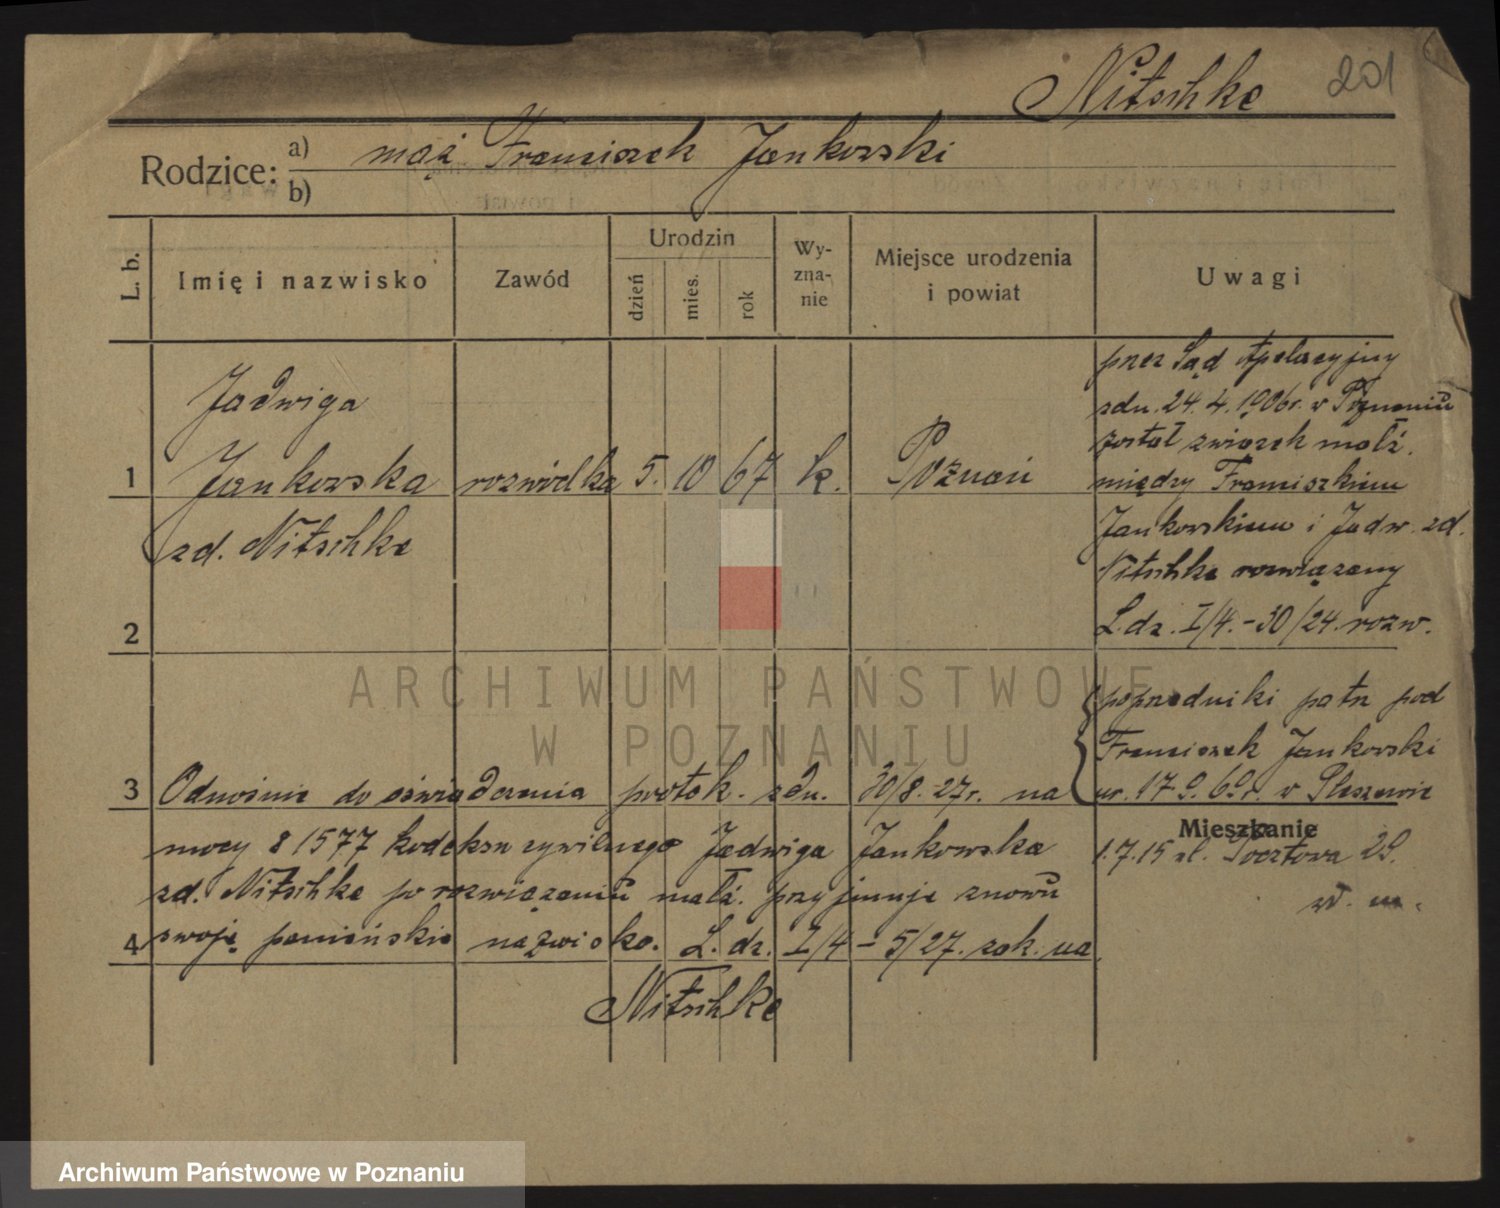 Nitschke 201
Rodzice: a) mąż Franciszek Jankowski
b)
L. b.
Imię i nazwisko
Zawód
Urodzin
dzień
mies.
rok
Wy-
zna-
nie
Miejsce urodzenia
i powiat
Uwagi
Jadwiga
1 Jankowska rozwódka 5. 10 67 k. Poznań
zd. Nitschke
2
przez Sąd Apelacyjny
zdn. 24. 4. 1906r. w Poznaniu
został związek małż.
między Franciszkiem
Jankowskiem i Jadw. zd.
Nitschke rozwiązany
L. dz. I/4. - 30/24. rozw.
poprzedniki patrz pod
Franciszek Jankowski
ur. 17. 9. 69r. w Pleszewie
3 Odnośnie do oświadczenia protok. zdn. 30/8. 27r. na
mocy § 1577 kodeksu cywilnego Jadwiga Jankowska
zd. Nitschke po rozwiązaniu małż. przyjmuje znowu
4 swoje panieńskie nazwisko. L. dz. I/4 - 5/27. zak. na
Nitschke
Mieszkanie
1. 7. 15 ul. Pocztowa 29.
ARCHIWUM PAŃSTWOWE
W POZNANIU
Archiwum Państwowe w Poznaniu